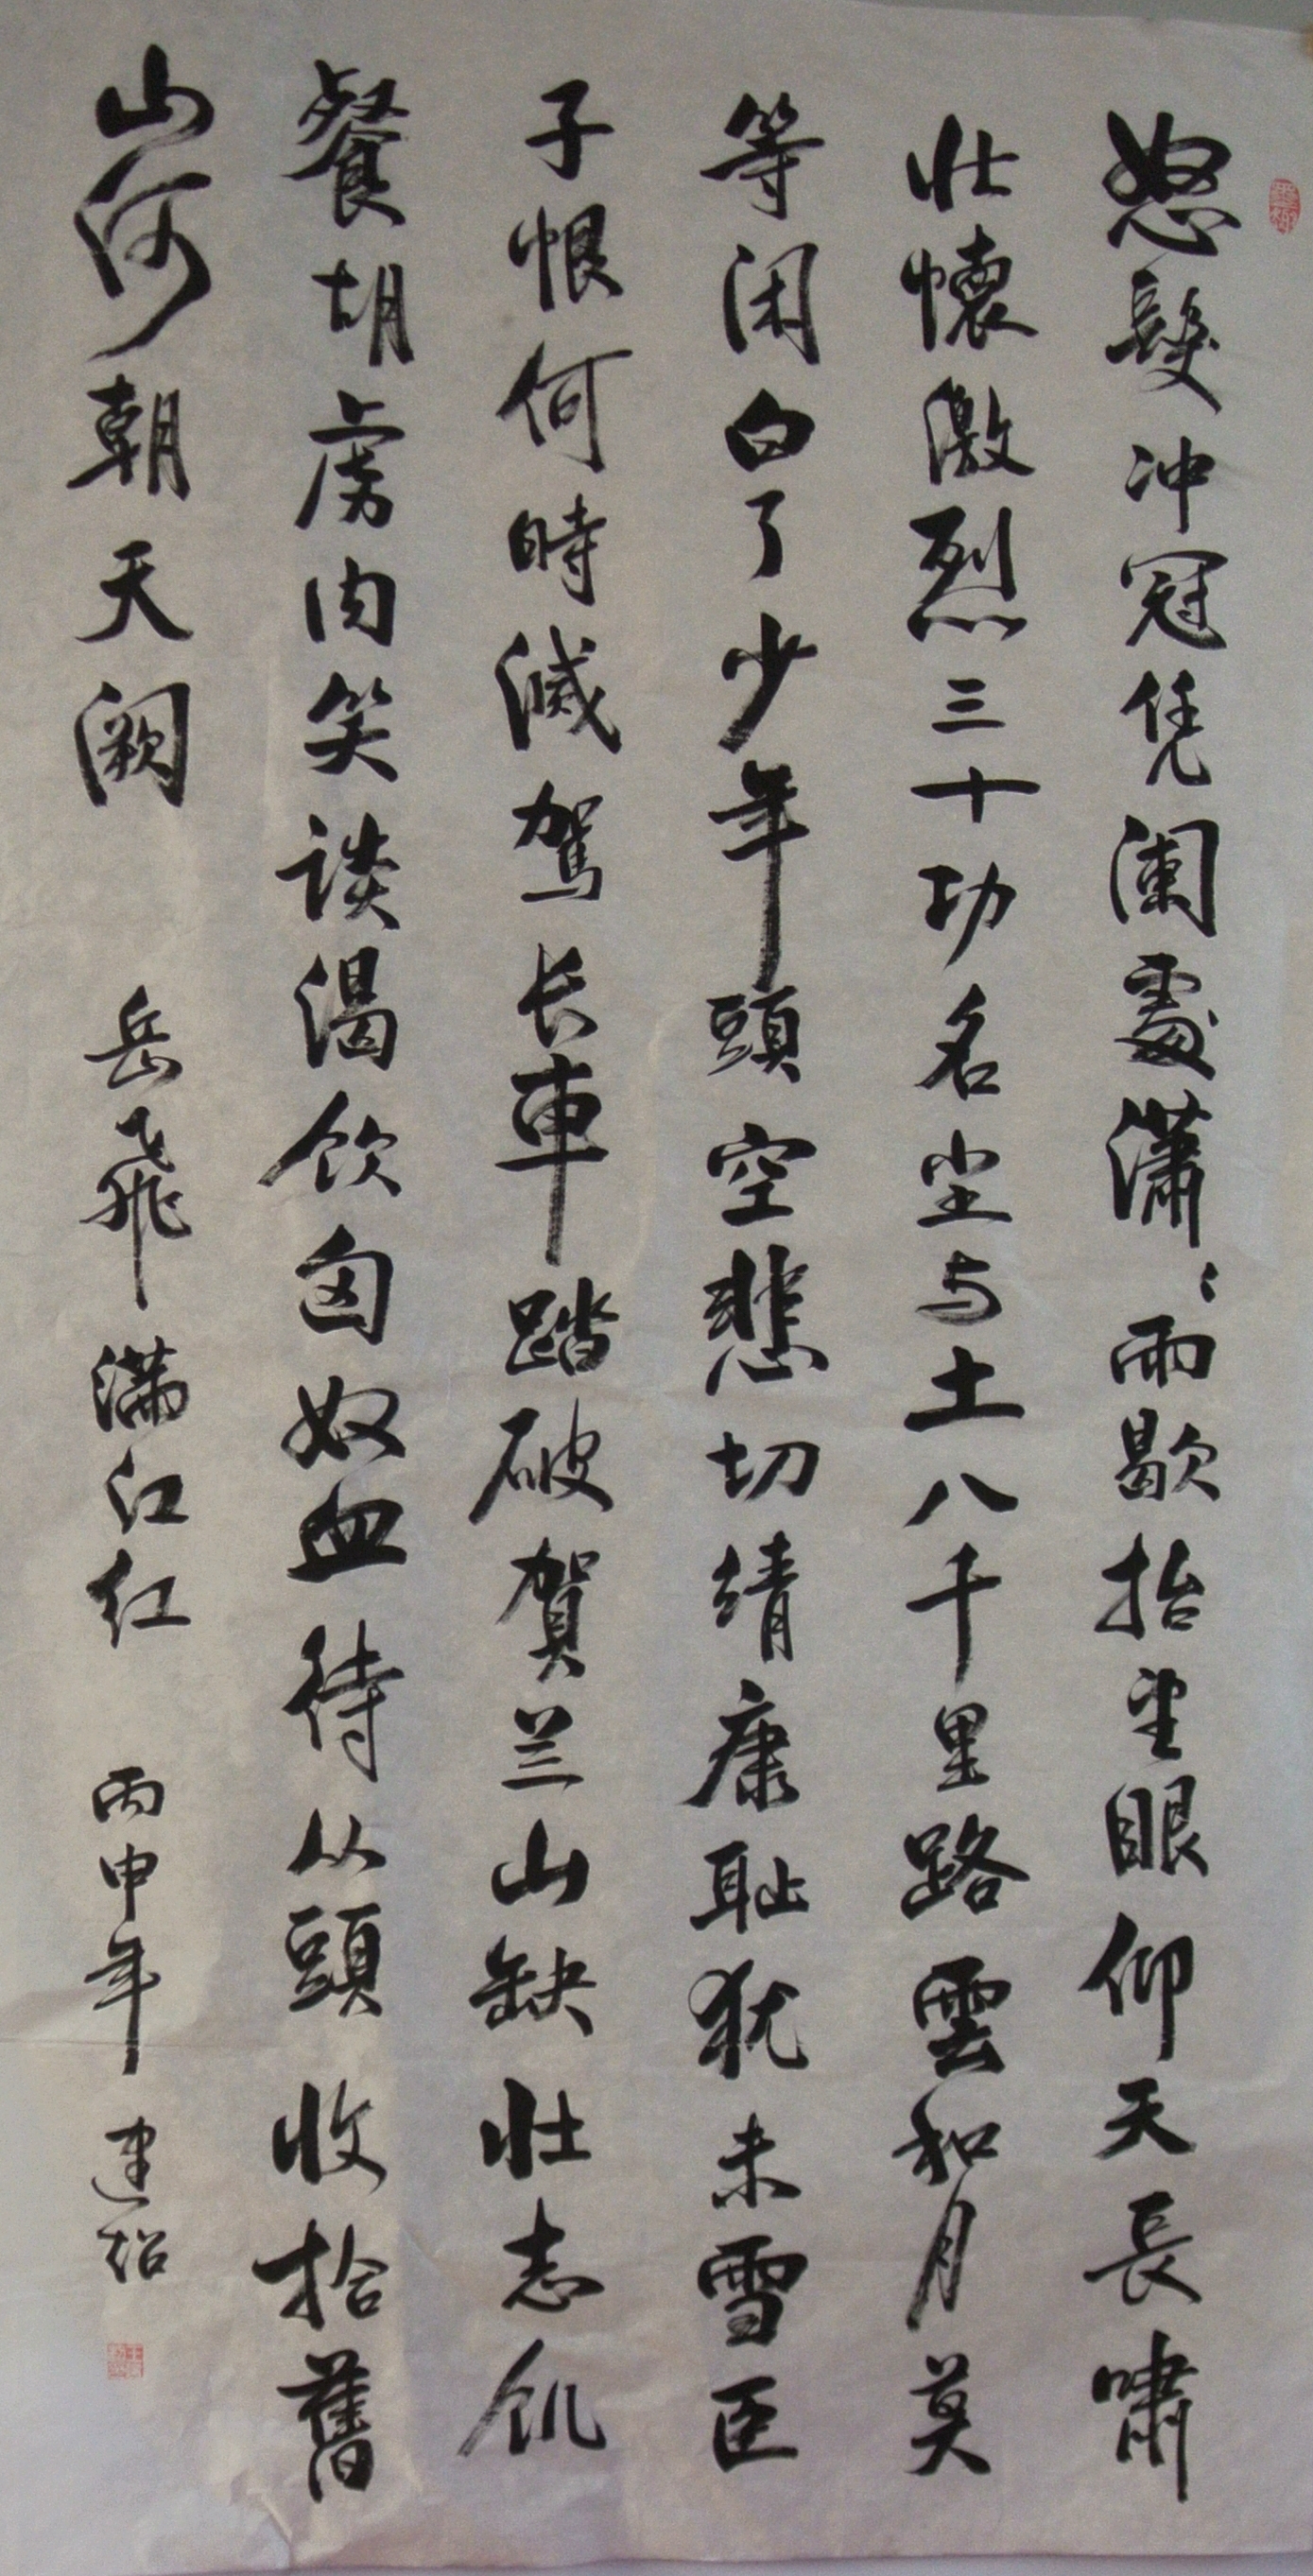 怒髮冲冠凭闌處瀟〻雨歇抬望眼仰天長嘯
壮懷激烈三十功名尘与土八千里路雲和月莫
等闲白了少年頭空悲切靖康耻犹未雪臣
子恨何時滅驾长車踏破賀兰山缺壮志飢
餐胡虏肉笑谈渴饮匈奴血待从頭收拾舊
山河朝天阙 岳飛满江红 丙申年建韬